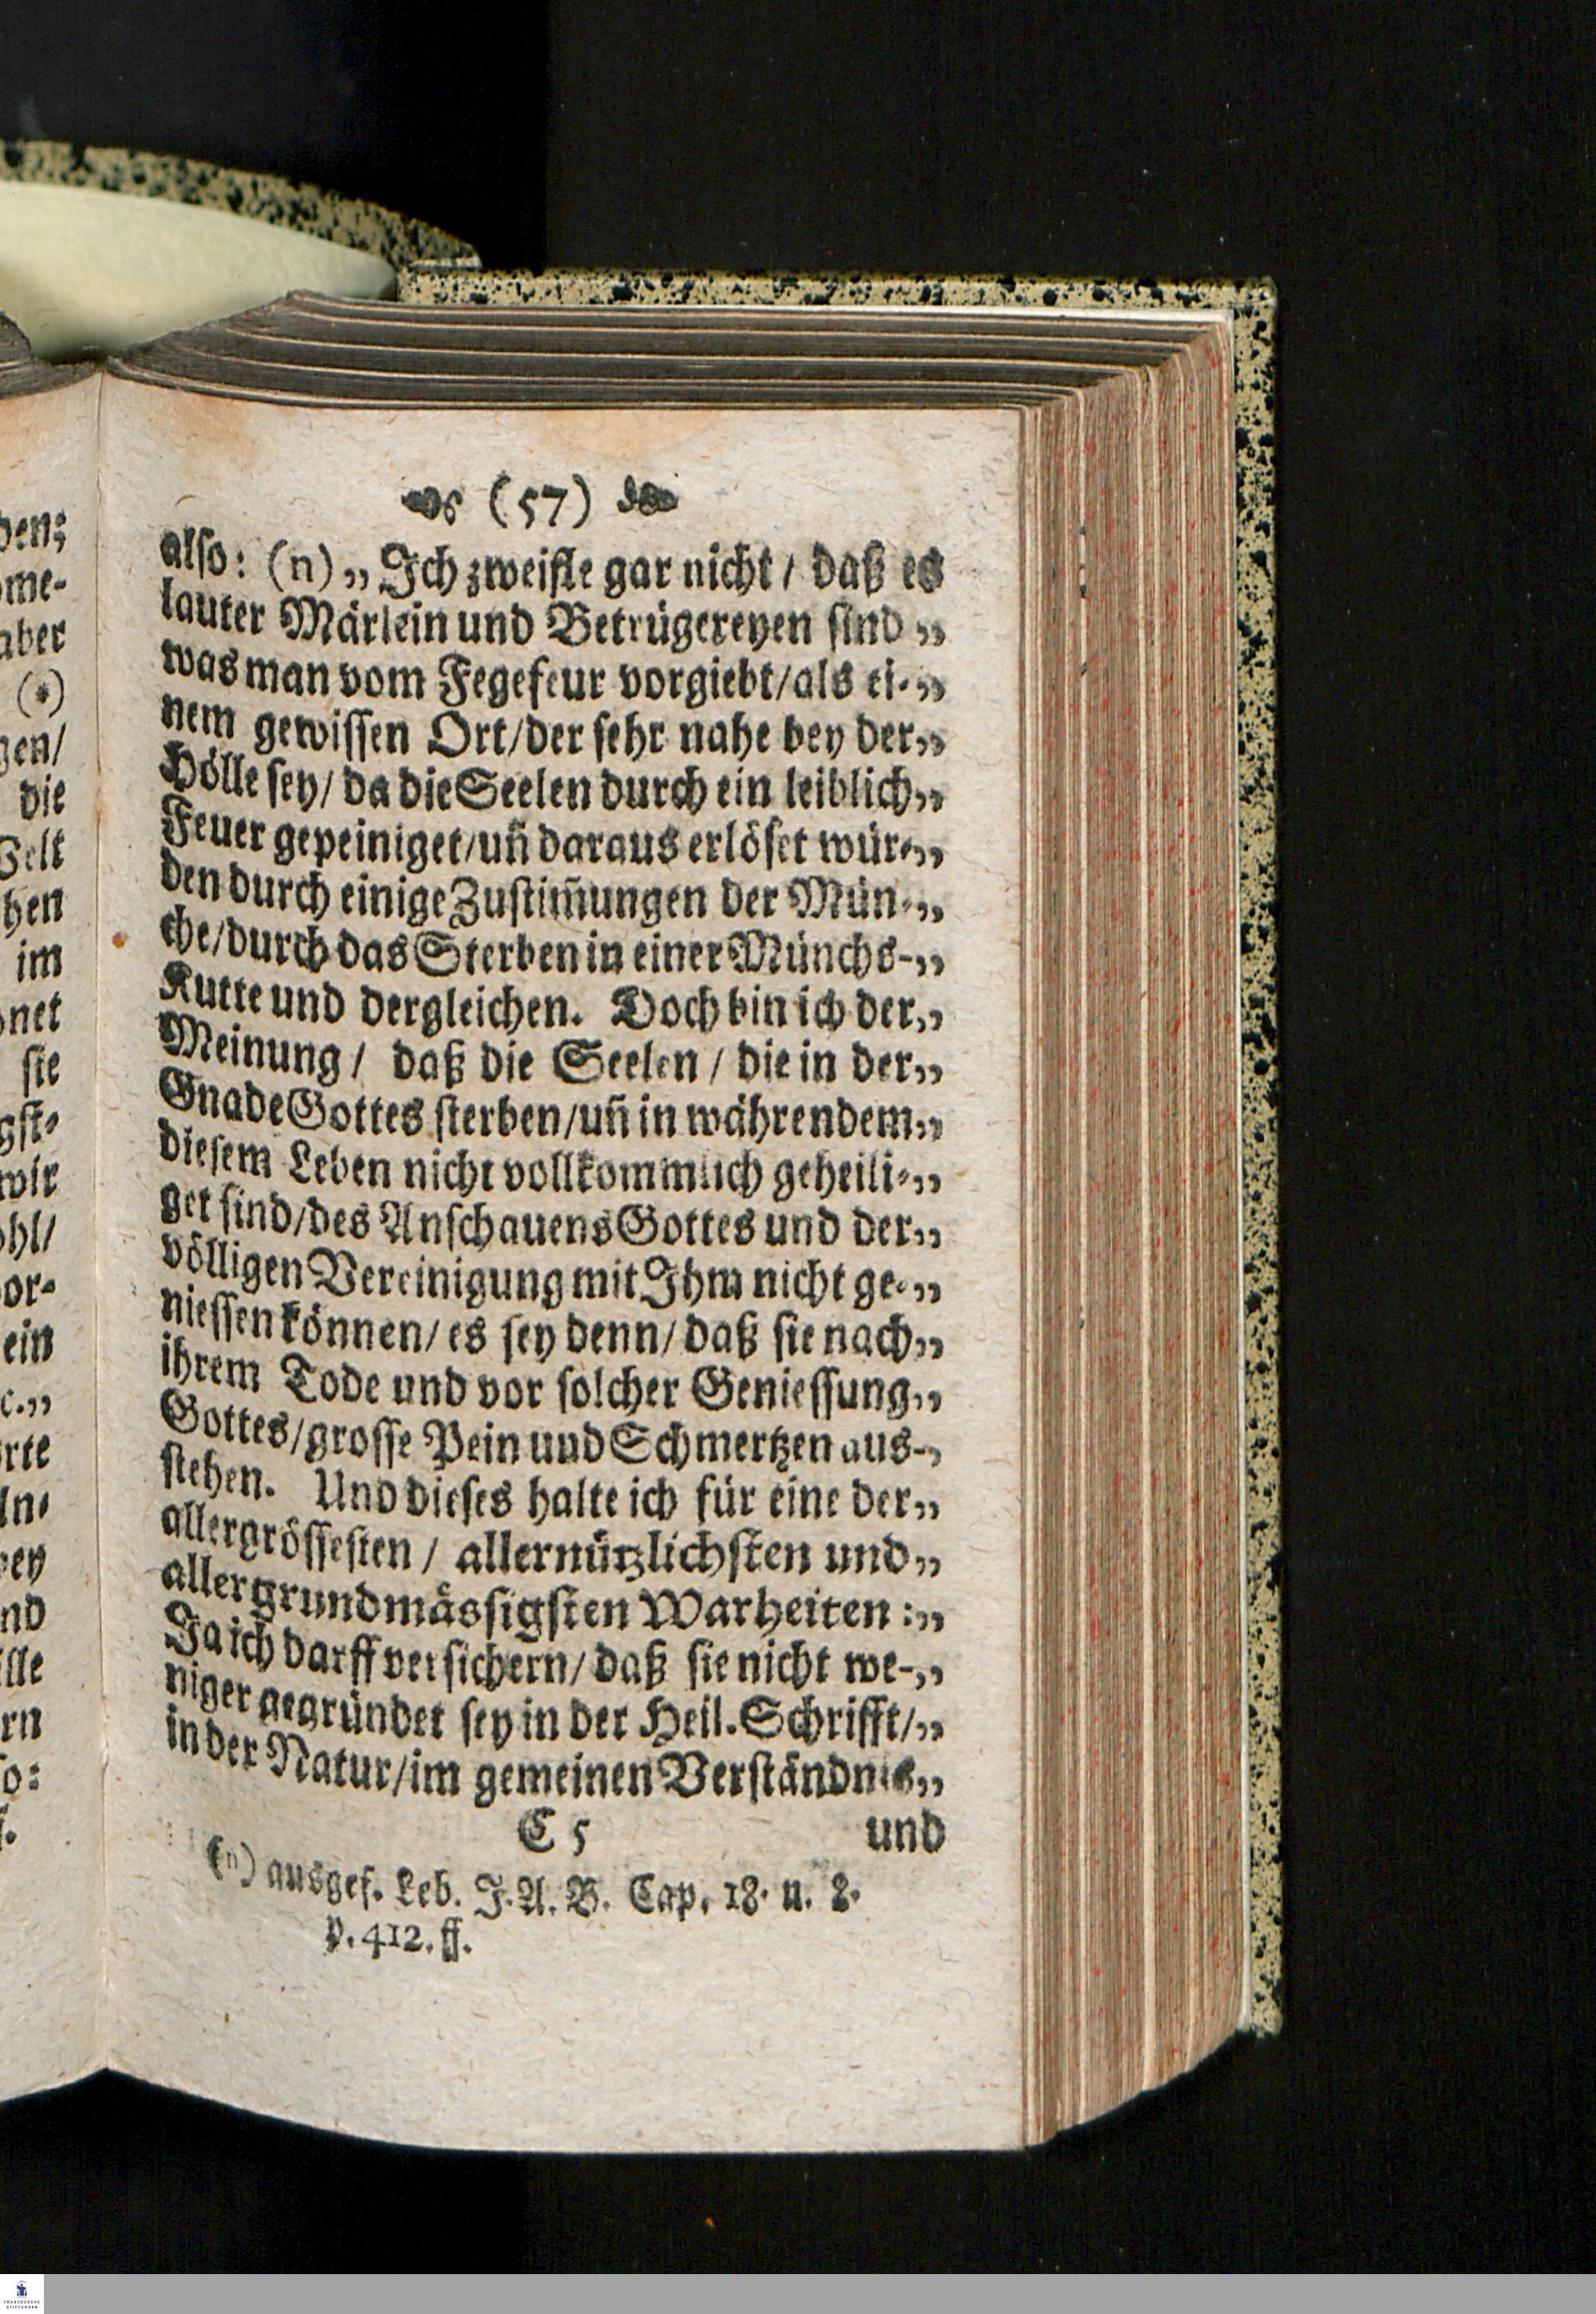 (57)
also: (n) „Ich zweifle gar nicht / daß es
lauter Märlein und Betrügereyen sind „
was man vom Fegefeur vorgiebt/als ei-„
nem gewissen Ort/der sehr nahe bey der„
Hölle sey/ da die Seelen durch ein leiblich„
Feuer gepeiniget/uñ daraus erlöset wür-„
den durch einige Zustim̃ungen der Mün-„
che/durch das Sterben in einer Münchs-„
Kutte und dergleichen. Doch bin ich der„
Meinung / daß die Seelen / die in der„
Gnade Gottes sterben/uñ in währendem„
diesem Leben nicht vollkommlich geheili-„
get sind/des Anschauens Gottes und der„
völligen Vereinigung mit Ihm nicht ge-„
niessen können/ es sey denn/ daß sie nach„
ihrem Tode und vor solcher Geniessung„
Gottes/grosse Pein und Schmertzen aus-„
stehen. Und dieses halte ich für eine der„
allergrössesten / allernützlichsten und„
allergrundmässigsten Warheiten :„
Ja ich darff versichern/ daß sie nicht we-„
niger gegründet sey in der Heil. Schrifft/„
in der Natur/im gemeinen Verständnis„
C 5 und
(n) ausges. Leb. J. A. B. Cap. 18. u. 2.
p. 412. ff.
den;
me-
aber
(*)
gen/
die
Welt
hen
im
net
sie
gst-
wir
ohl/
or-
ein
c.„
rte
ln-
bey
nd
ille
rn
so:
FRANCKESCHE
STIFTUNGEN